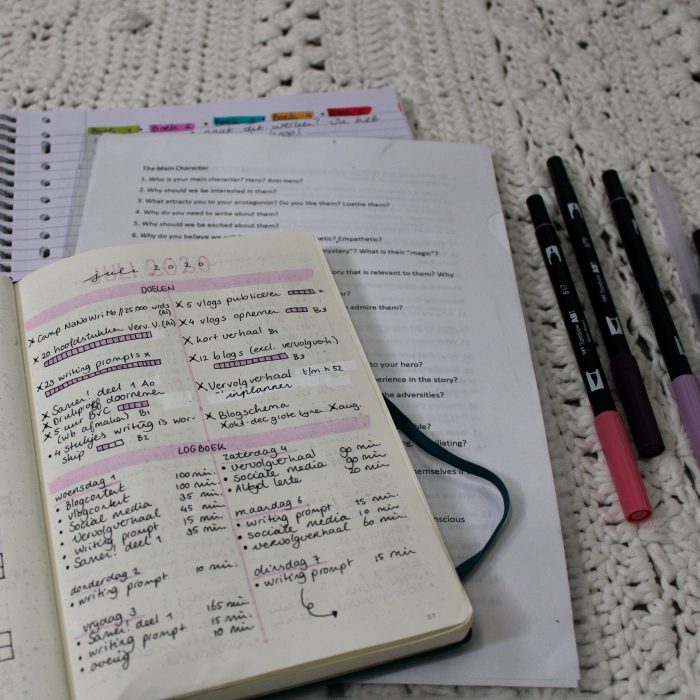 Boek 1
Boek 2
Boek 4
gaat dit werken? Ik heb
The Main Character
1. Who is your main character? Hero? Anti-hero?
2. Why should we be interested in them?
3. What attracts you to your protagonist? Do you like them? Loathe them?
4. Why do you need to write about them?
5. Why should we be excited about them?
6. Why do you believe we will
Empathetic?
mystery"? What is their "magic"?
tory that is relevant to them? Why
admire them?
to your hero?
erience in the story?
the adversities?
ble?
iliating?
emselves
nscious
JULI 2020
juli 2020
DOELEN
x Camp NaNoWriMo // 25.000 wrds (A1)
x 20 hoofdstukken verv. V. (A1)
x 23 writing prompts x
x Samen! deel 1 A0
x Drukproef doornemen
x 5 uur BVC
(wb afmaken) B1
• 4 stukjes writing is wor-
ship B2
x 5 vlogs publiceren x
x 4 vlogs opnemen B3
x kort verhaal B1
x 12 blogs (excl. vervolgverh.)
B3
x Vervolgverhaal t/m h 52
inplannen
x Blogschema
x okt-dec grote lijnen x aug.
LOGBOEK
woensdag 1
• Blogcontent 100 min.
• Vlogcontent 100 min.
• Social media 35 min.
• Vervolgverhaal 45 min.
• Writing prompt 15 min.
• Samen! deel 1 35 min.
donderdag 2
• writing prompt 10 min.
vrijdag 3
• Samen! deel 1 165 min.
• writing prompt 15 min.
• overig 10 min.
zaterdag 4
• vervolgverhaal 90 min.
• Sociale media 90 min.
• Altijd lente 20 min.
maandag 6
• writing prompt 15 min.
• sociale media 10 min.
• vervolgverhaal 60 min.
dinsdag 7
• writing prompt 15 min.
37
817
679
Tombow ABT